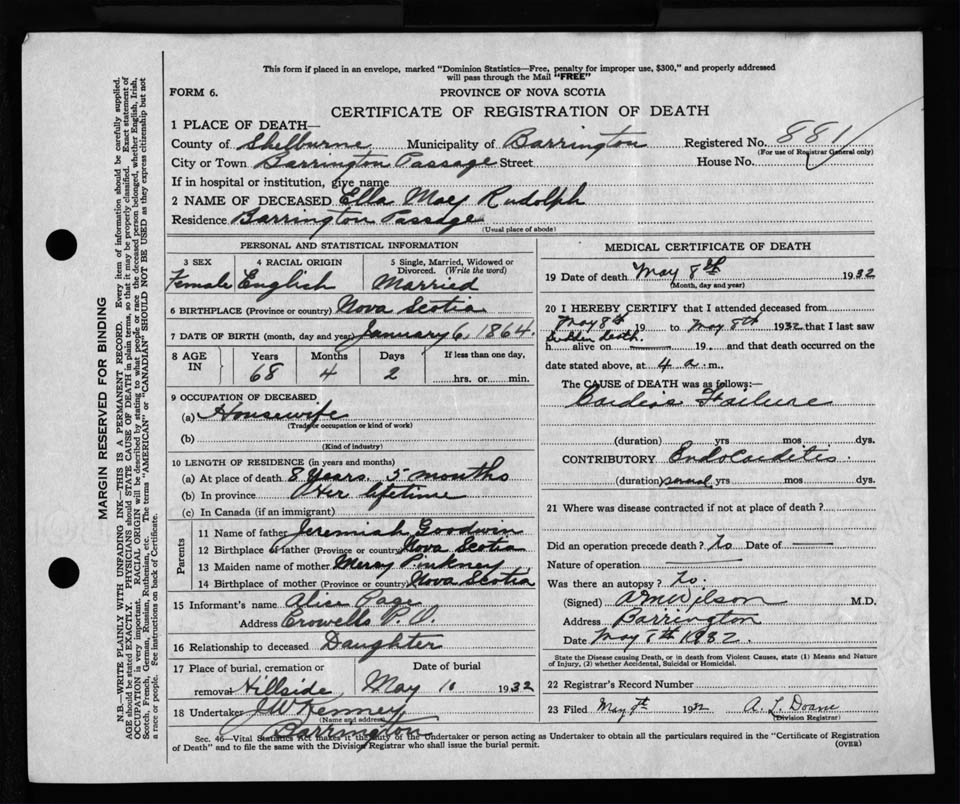 This form if placed in an envelope, marked "Dominion Statistics—Free, penalty for improper use, $300," and properly addressed
will pass through the Mail "FREE"
FORM 6.
PROVINCE OF NOVA SCOTIA
CERTIFICATE OF REGISTRATION OF DEATH
1 PLACE OF DEATH—
County of Shelburne Municipality of Barrington Registered No. 881
(For use of Registrar General only)
City or Town Barrington Passage Street House No.
If in hospital or institution, give name
2 NAME OF DECEASED Ella May Rudolph
Residence Barrington Passage
(Usual place of abode)
PERSONAL AND STATISTICAL INFORMATION
3 SEX 4 RACIAL ORIGIN 5 Single, Married, Widowed or
Divorced. (Write the word)
Female English Married
6 BIRTHPLACE (Province or country) Nova Scotia
7 DATE OF BIRTH (month, day and year) January 6, 1864.
8 AGE IN Years Months Days If less than one day,
68 4 2 hrs. or min.
9 OCCUPATION OF DECEASED
(a) Housewife
(Trade, occupation or kind of work)
(b)
(Kind of industry)
10 LENGTH OF RESIDENCE (in years and months)
(a) At place of death 8 years 5 months
(b) In province Her lifetime
(c) In Canada (if an immigrant)
Parents
11 Name of father Jeremiah Goodwin
12 Birthplace of father (Province or country) Nova Scotia
13 Maiden name of mother Mercy Pinkney
14 Birthplace of mother (Province or country) Nova Scotia
15 Informant's name Alice Page
Address Crowells P.O.
16 Relationship to deceased Daughter
17 Place of burial, cremation or Date of burial
removal Hillside, May 10 1932
18 Undertaker J W Kenney
(Name and address)
Barrington
MEDICAL CERTIFICATE OF DEATH
19 Date of death May 8th 1932
(Month, day and year)
20 I HEREBY CERTIFY that I attended deceased from
May 8th 19 to May 8th 1932 that I last saw
sudden death.
h alive on 19 and that death occurred on the
date stated above, at 4 a.m.
The CAUSE of DEATH was as follows:—
Cardiac Failure
(duration) yrs mos dys.
CONTRIBUTORY Endocarditis
(duration) several yrs mos dys.
21 Where was disease contracted if not at place of death?
Did an operation precede death? No Date of
Nature of operation
Was there an autopsy? No.
(Signed) A M Wilson M.D.
Address Barrington
Date May 8th 1932
State the Disease causing Death, or in death from Violent Causes, state (1) Means and Nature
of Injury, (2) whether Accidental, Suicidal or Homicidal.
22 Registrar's Record Number
23 Filed May 9th 1932 A. L. Doane
(Division Registrar)
Sec. 46—Vital Statistics Act makes it the duty of the Undertaker or person acting as Undertaker to obtain all the particulars required in the "Certificate of Registration
of Death" and to file the same with the Division Registrar who shall issue the burial permit. (OVER)
MARGIN RESERVED FOR BINDING
N.B.—WRITE PLAINLY WITH UNFADING INK—THIS IS A PERMANENT RECORD. Every item of information should be carefully supplied.
AGE should be stated EXACTLY. PHYSICIANS should STATE CAUSE OF DEATH in plain terms, so that it may be properly classified. Exact statement of
OCCUPATION is very important. RACIAL ORIGIN will be described by stating to what people or race the deceased person belonged, whether English, Irish,
Scotch, French, German, Russian, Ruthenian, etc. The terms "AMERICAN" or "CANADIAN" SHOULD NOT BE USED as they express citizenship but not
a race or people. See instructions on back of Certificate.